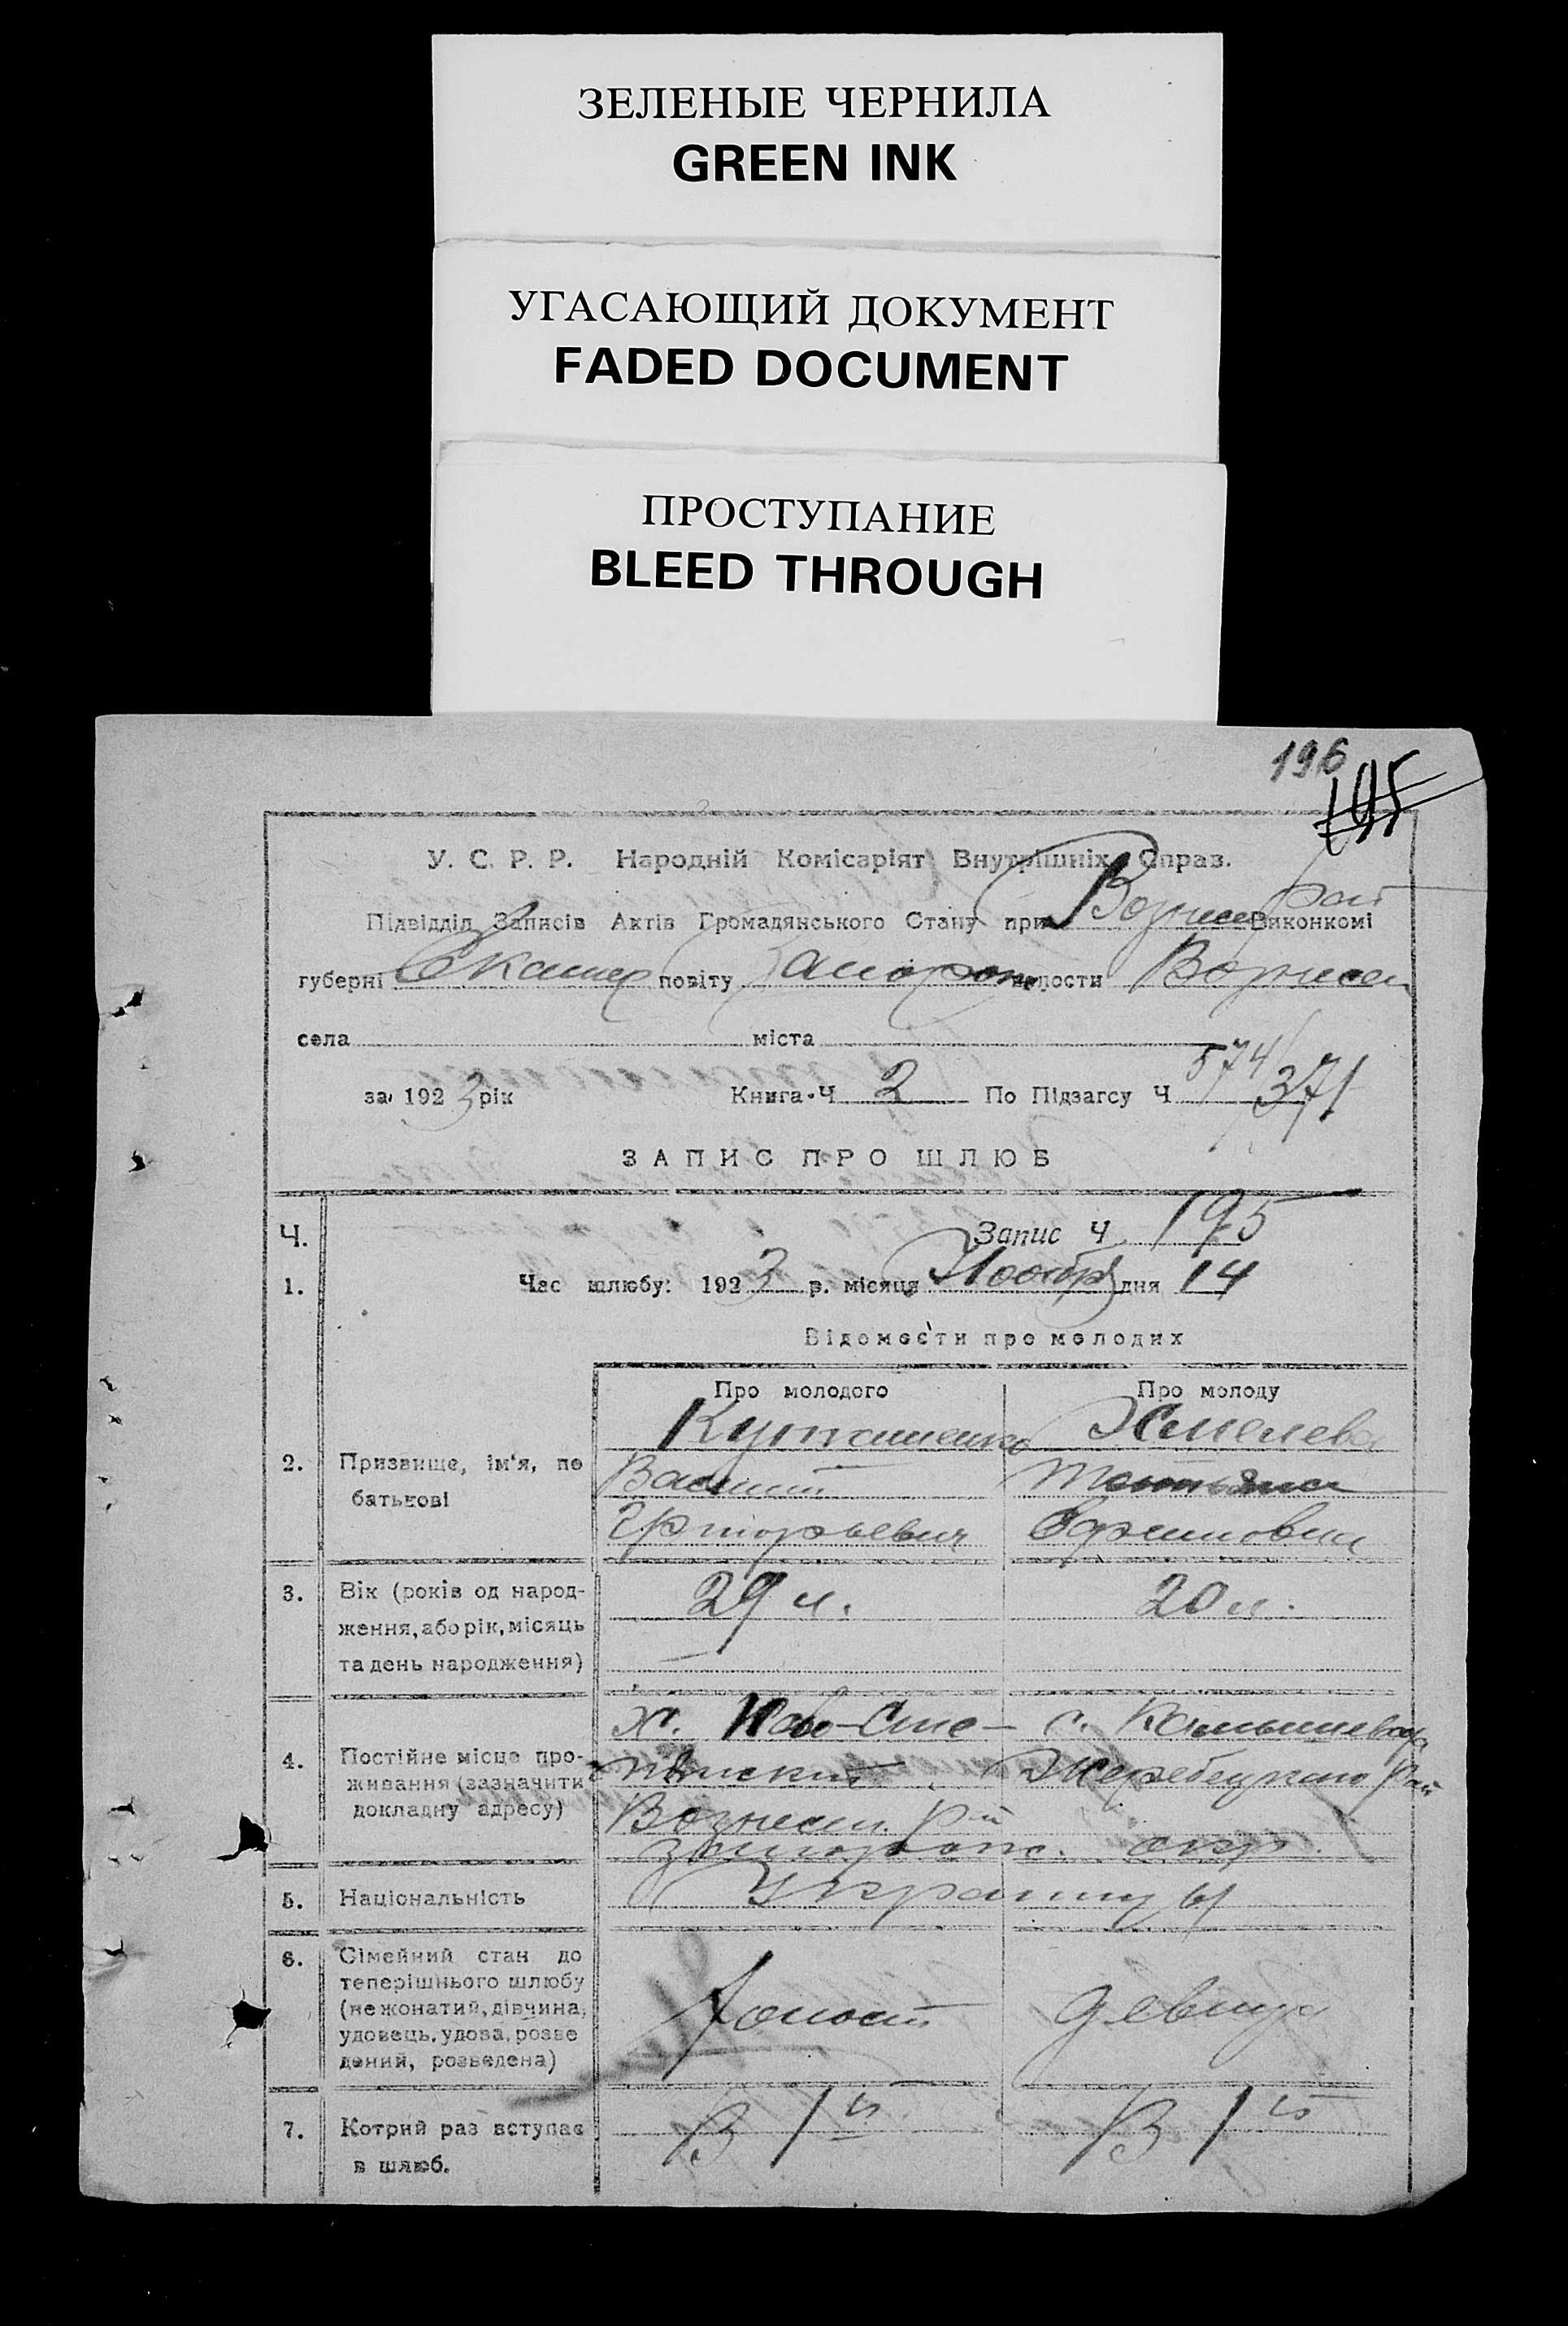 ЗЕЛЕНЫЕ ЧЕРНИЛА
GREEN INK
УГАСАЮЩИЙ ДОКУМЕНТ
FADED DOCUMENT
ПРОСТУПАНИЕ
BLEED THROUGH
196
195
У. С. Р. Р. Народній Комісаріят Внутрішніх Справ.
Підвідділ Записів Актів Громадянського Стану при Вознес рай Виконкомі
губерні повіту волости Вознесен
села міста
574/371
за 1923 рік Книга Ч 2 По Підзагсу Ч
ЗАПИС ПРО ШЛЮБ
Ч. Запис Ч 195
1. Час шлюбу: 1923 р. місяця Ноября дня 14
Відомости про молодих
Про молодого Про молоду
2. Призвище, ім'я, по батькові
Хмелева
Василий Татьяна
Григорьевич
3. Вік (років од народ-
ження, або рік, місяць
та день народження)
29 л. 20 л.
4. Постійне місце про-
живання (зазначити
докладну адресу)
х. Ново-Сте- с. Камышеваха
Жеребецкого Рай
Вознесен. Рай
Запорож. окр.
5. Національність Украинцы
6. Сімейний стан до
теперішнього шлюбу
(не жонатий, дівчина,
удовець, удова, розве
дений, розведена)
Холост девица
7. Котрий раз вступає
в шлюб.
В 1й В 1й